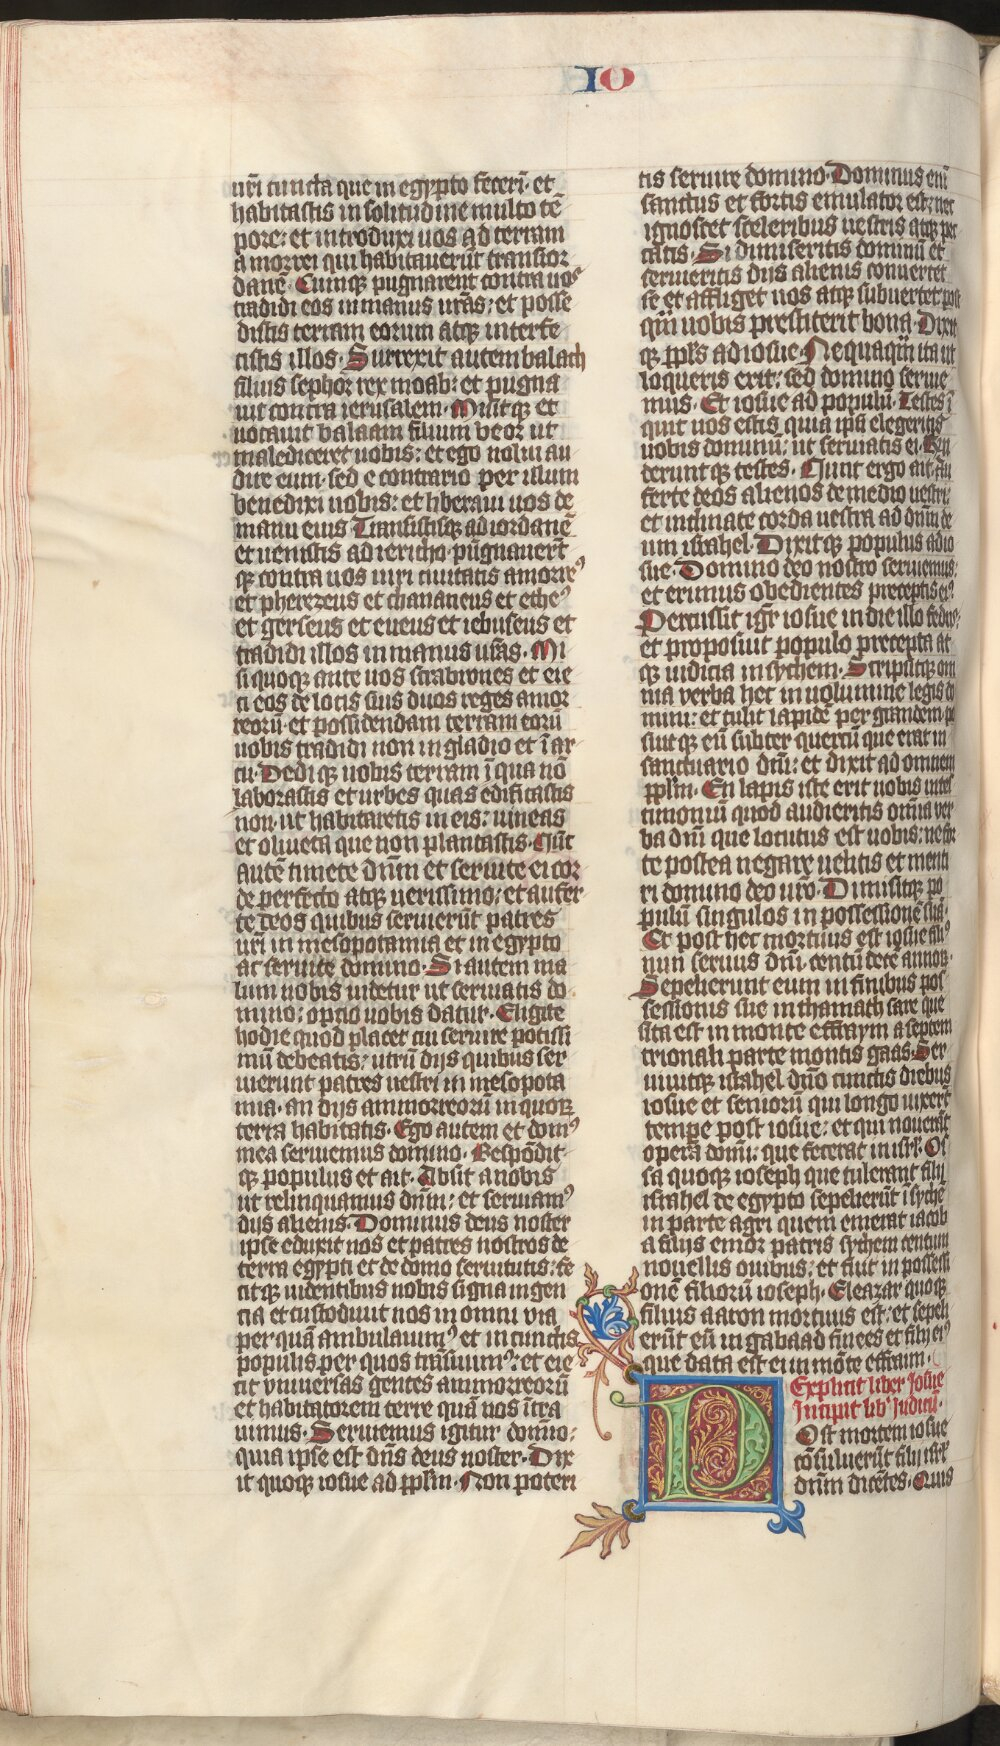 IO
uri cuncta que in egypto fecerī. et
habitastis in solitudine multo tē
pore: et introduxi uos ad terram
amorrei qui habitauerūt transior
danē. Cumq̄ pugnarent contra uos
tradidi eos in manus uras: et posse
distis terram eorum atq̄ interfe
cistis illos. Surrexit autem balach
filius sephor rex moab: et pugna
uit contra ierusalem. Misitq̄ et
uocauit balaam filium beor ut
malediceret uobis: et ego nolui au
dire eum. sed e contrario per illum
benedixi uobis: et liberaui uos de
manu eius Transistisq̄ ad iordanē
et uenistis ad iericho. pugnauerūt
q̄ contra uos uiri ciuitatis amorre⁹
et pherezeus et chananeus et ethe⁹
et gerseus et eueus et iebuseus et
tradidi illos in manus uras. Mi
si quoq̄ ante uos scrabrones et eie
ci eos de locis suis duos reges amor
reorū. et possidendam terram eorū
uobis tradidi non in gladio et ī ar
cu. Dediq̄ uobis terram ī qua nō
laborastis et urbes quas edificastis
non. ut habitaretis in eis: uineas
et oliueta que non plantastis. Nūc
autē timete dnm et seruite ei cor
de perfecto atq̄ uerissimo: et aufer
te deos quibus seruierūt patres
uri in mesopotamia et in egypto
ac seruite domino. Si autem ma
lum uobis uidetur ut seruiatis do
mino: optio uobis datur. Eligite
hodie quod placet cui seruire potissi
mū debeatis: utrū dijs quibus ser
uierunt patres uestri in mesopota
mia. an dijs ammorreorū in quoꝝ
terra habitatis. Ego autem et dom⁹
mea seruiemus domino. Respōdit
q̄ populus et ait. Absit a nobis
ut relinquamus dnm: et seruiam⁹
dijs alienis. Dominus deus noster
ipse eduxit nos et patres nostros de
terra egypti et de domo seruitutis: fe
citq̄ uidentibus nobis signa ingen
cia et custodiuit nos in omni via
per quā ambulauim⁹ et in cunctis
populis per quos trāsiuim⁹: et eie
cit vniuersas gentes ammorreorū
et habitatorem terre quā nos ītra
uimus. Seruiemus igitur domīo:
quia ipse est dns deus noster. Dix
it quoq̄ iosue ad pplm. Non poteri
tis seruire domino. Dominus enī
sanctus et fortis emulator est: nec
ignoscet sceleribus uestris atq̄ pec
catis. Si dimiseritis dominū et
seruieritis diis alienis conuertet
se et affliget uos atq̄ subuertet: post
qm̄ uobis prestiterit bona. Dixit
q̄ ppls ad iosue. Nequaqm̄ ita ut
loqueris erit: sed domino seruie
mus. Et iosue ad populū. Testes ī
quit uos estis quia ipsi elegeritis
uobis dominū: ut seruiatis ei. Rn̄
derunt q̄ testes. Nunc ergo ait. au
ferte deos alienos de medio uestri:
et inclinate corda uestra ad dnm de
um israhel. Dixitq̄ populus ad io
sue. Domino deo nostro seruiemus:
et erimus obedientes preceptis ei⁹.
Percussit igr iosue in die illo fedus:
et proposuit populo precepta at
q̄ iudicia in sychem. Scripsitq̄ om
nia verba hec in uolumine legis do
mini: et tulit lapidē per grandem. po
suit q̄ eū subter quercū que erat in
sanctuario dni: et dixit ad omnem
pplm. En lapis iste erit uobis in tes
timoniū quod audieritis omīa ver
ba dni que locutus est uobis: ne for
te postea negare uelitis et menti
ri domino deo uro. Dimisitq̄ po
pulū singulos in possessionē suā.
Et post hec mortuus est iosue fili⁹
nun seruus dni. centū decē annoꝝ.
Sepelierunt eum in finibus pos
sessionis sue in thamath sare que
sita est in monte effraym a septem
trionali parte montis gaas. Ser
uiuitq̄ israhel dno cunctis diebus
iosue et seniorū qui longo uixerūt
tempe post iosue: et qui nouerāt
opera domī: que fecerat in isrl. Os
sa quoq̄ ioseph que tulerant filij
israhel de egypto sepelierūt ī syche
in parte agri quem emerat iacob
a filijs emor patris sychem centum
nouellis ouibus: et fuit in possessi
onē filiorū ioseph. Eleazar quoq̄
filius aaron mortuus est: et sepeli
erūt eū in gabaad finees et filij ei⁹
que data est ei in mōte effraim.
Explicit liber Iosue
Incipit lib⁹ Iudicū.
POst mortem iosue
cōsuluerūt filij isrl
dnm dicētes. Quis